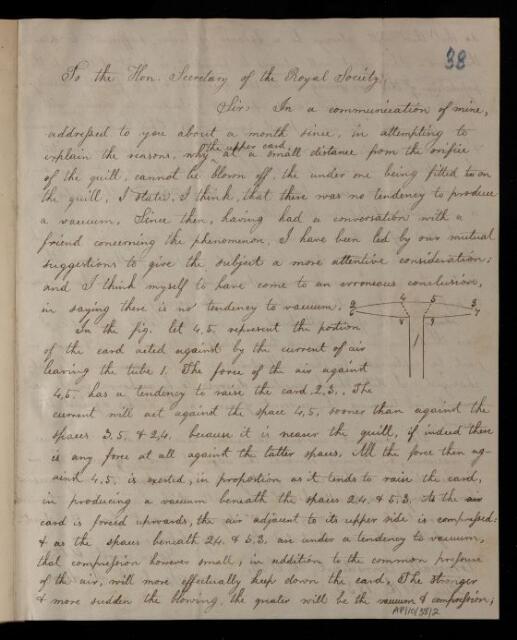 38
To the Hon. Secretary of the Royal Society.
Sir. In a communication of mine,
addressed to you about a month since, in attempting to
the upper card,
explain the reasons, why at a small distance from the orifice
of the quill, cannot be blown off, the under one being fitted on
the quill, I stated, I think, that there was no tendency to produce
a vacuum. Since then, having had a conversation with a
friend concerning the phenomenon, I have been led by our mutual
suggestions to give the subject a more attentive consideration;
and I think myself to have come to an erroneous conclusion,
in saying there is no tendency to vacuum.
2 4 5 3
6 7
1
In the fig. let 4,5, represent the portion
of the card acted against by the current of air
leaving the tube 1. The force of the air against
4,5. has a tendency to raise the card, 2,3,. The
current will act against the space 4,5, sooner than against the
spaces 3,5. & 2,4. because it is nearer the quill, if indeed there
is any force at all against the latter spaces. All the force then ag-
ainst 4,5. is exerted, in proportion as it tends to raise the card,
in producing a vacuum beneath the spaces 2,4. & 5,3. As the air
card is forced upwards, the air adjacent to its upper side is compressed:
& as the spaces beneath 2,4. & 5,3, are under a tendency to vacuum,
that compression however small, in addition to the common pressure
of the air, will more effectually keep down the card. The stronger
& more sudden the blowing, the greater will be the vacuum & compression;
AP/10/38/2